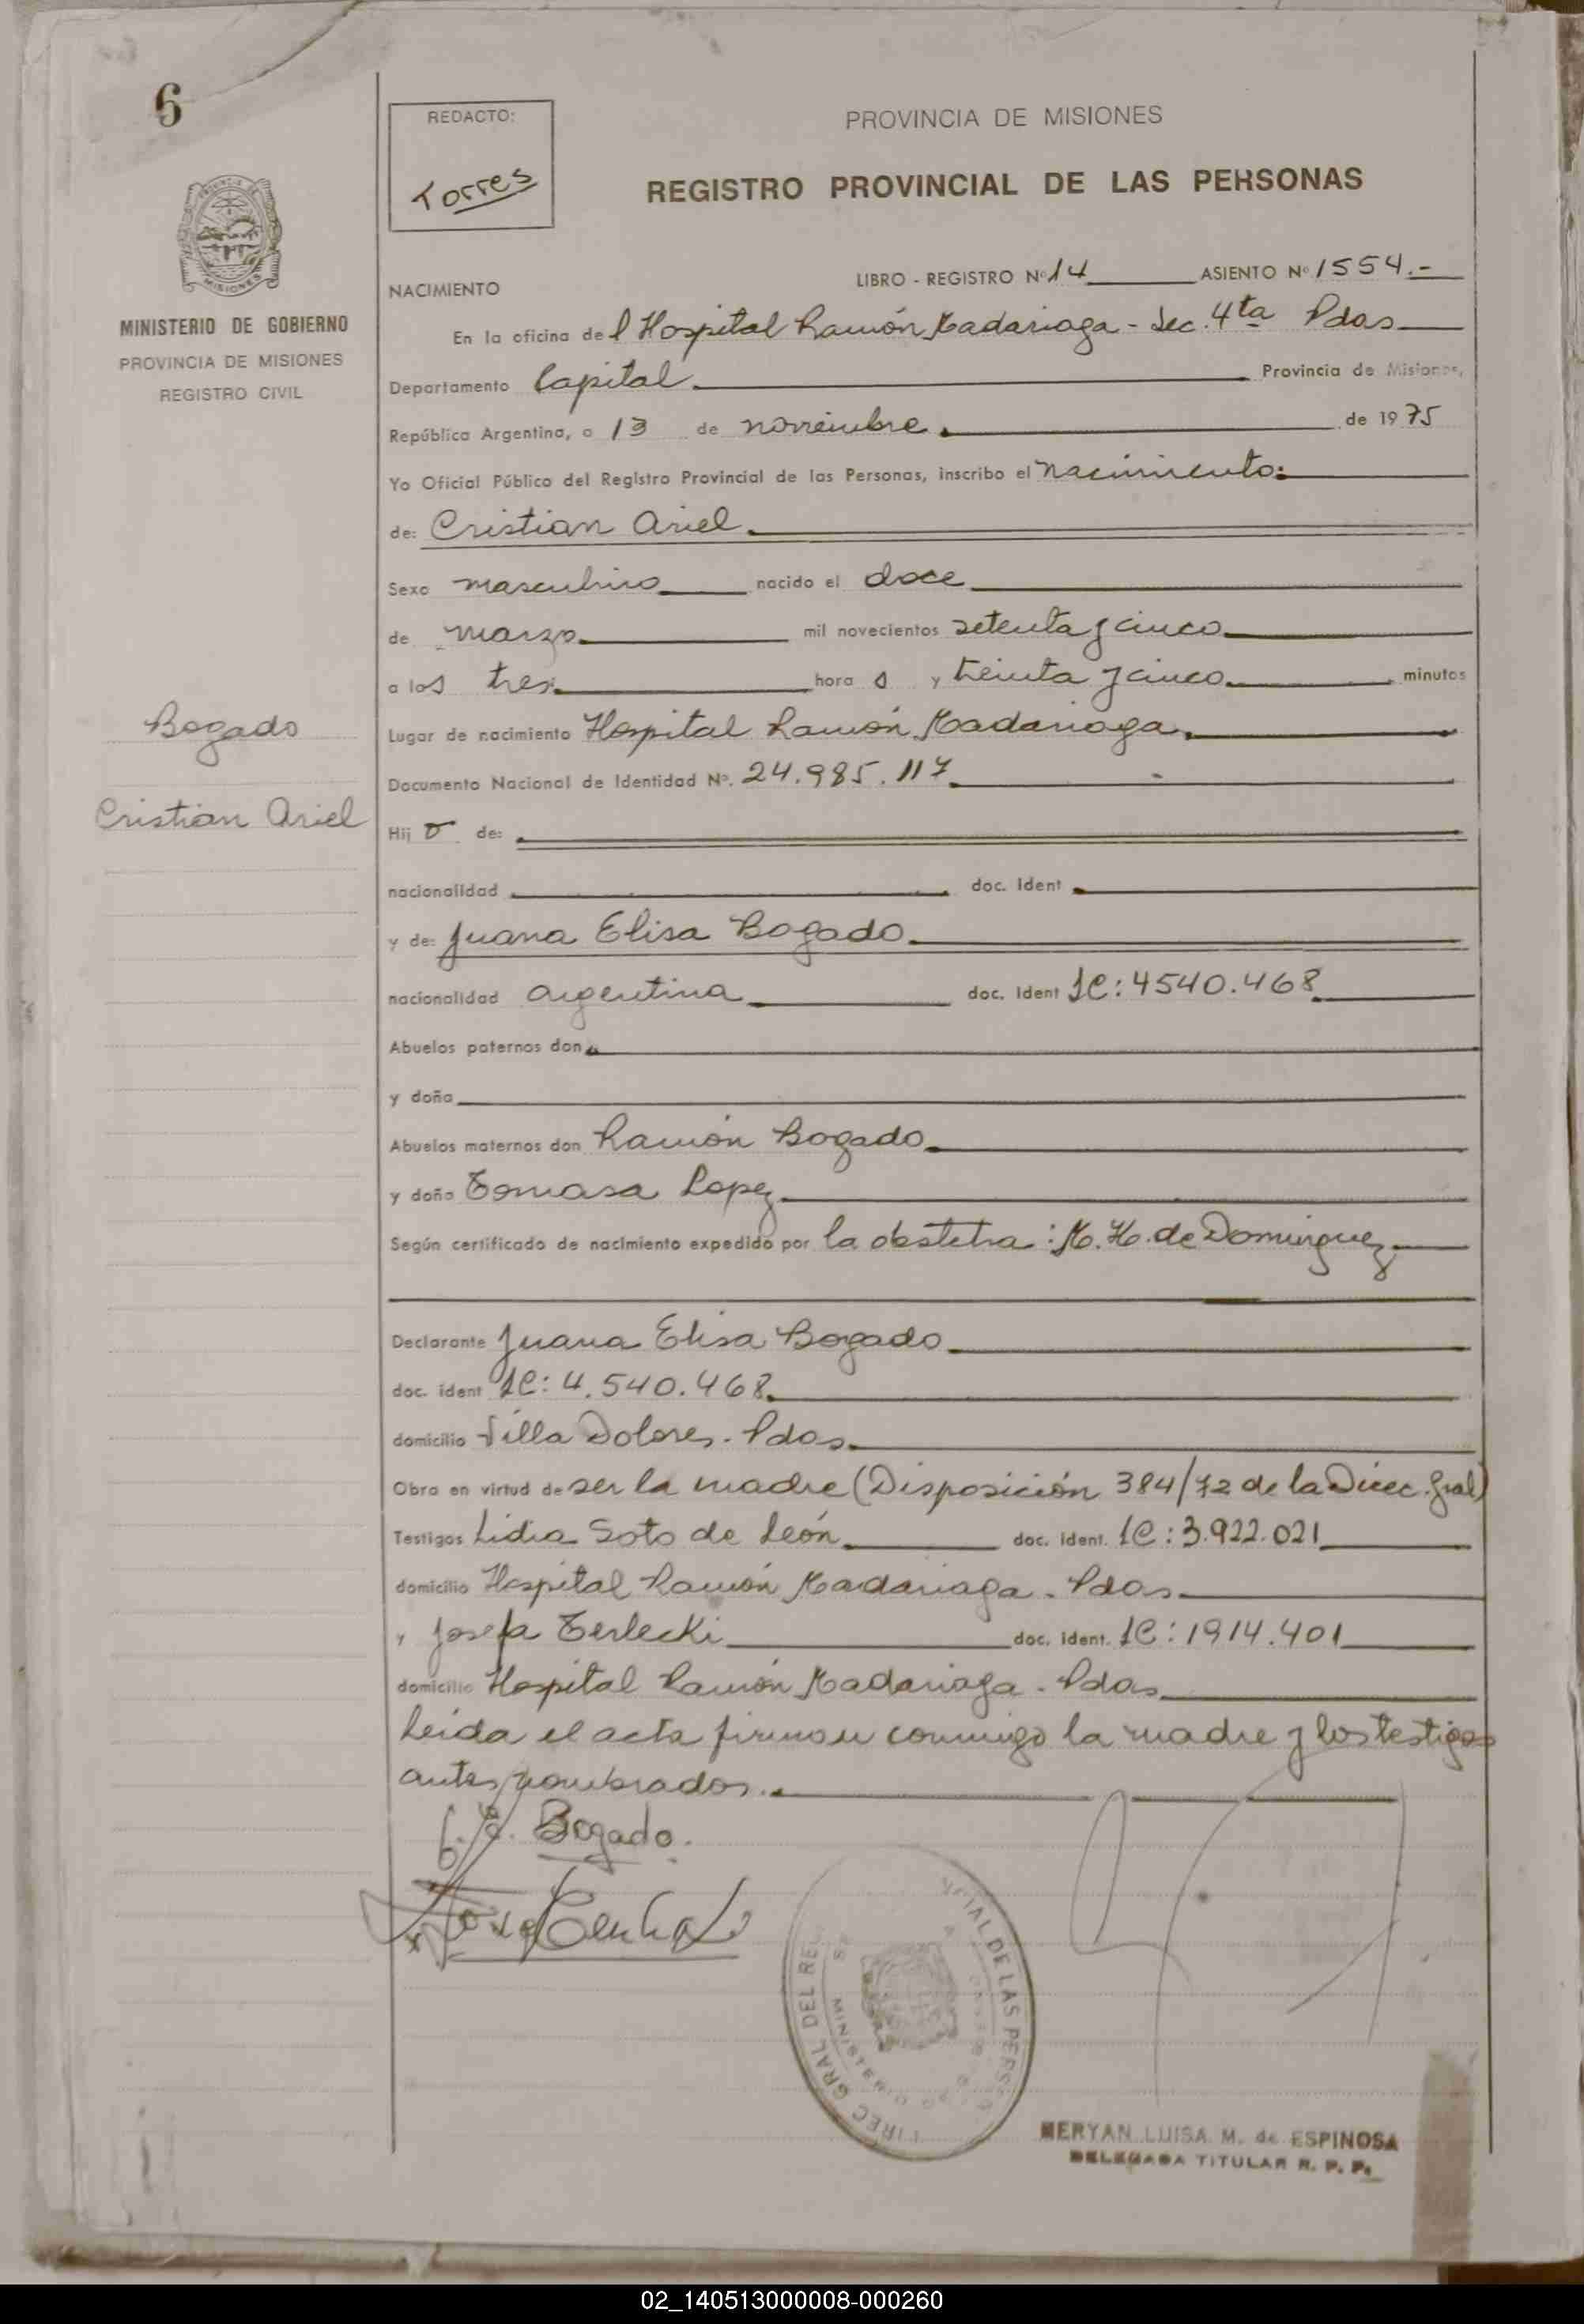 6
REDACTO:
Torres
PROVINCIA DE MISIONES
REGISTRO PROVINCIAL DE LAS PERSONAS
MISIONES
MINISTERIO DE GOBIERNO
PROVINCIA DE MISIONES
REGISTRO CIVIL
NACIMIENTO LIBRO - REGISTRO Nº 14 ASIENTO Nº 1554.-
En la oficina del Hospital Ramón Madariaga - Sec. 4ta Pdas
Departamento Capital Provincia de Misiones,
República Argentina, a 13 de noviembre de 1975
Yo Oficial Público del Registro Provincial de las Personas, inscribo el nacimiento:
de: Cristian Ariel
Sexo masculino nacido el doce
de marzo mil novecientos setenta y cinco
a las tres horas y treinta y cinco minutos
Lugar de nacimiento Hospital Ramón Madariaga.
Documento Nacional de Identidad Nº. 24.985.117
Bogado
Cristian Ariel
Hijo de:
nacionalidad doc. Ident
y de: Juana Elisa Bogado
nacionalidad argentina doc. Ident LC: 4540.468
Abuelos paternos don
y doña
Abuelos maternos don Ramón Bogado
y doña Tomasa Lopez
Según certificado de nacimiento expedido por la obstetra: M. H. de Dominguez
Declarante Juana Elisa Bogado
doc. ident LC: 4.540.468
domicilio Villa Dolores. Pdas
Obra en virtud de ser la madre (Disposición 384/72 de la Direc. Gral)
Testigos Lidia Soto de León doc. ident. LC: 3.922.021
domicilio Hospital Ramón Madariaga. Pdas
y Josefa Terlecki doc. ident. LC: 1914.401
domicilio Hospital Ramón Madariaga. Pdas
Leida el acta firman conmigo la madre y los testigos
antes nombrados.
J. E. Bogado.
DIREC GRAL DEL REG
CIAL DE LAS PERSO
MINISTERIO
MERYAN LUISA M. de ESPINOSA
DELEGADA TITULAR R. P. P.
02_140513000008-000260